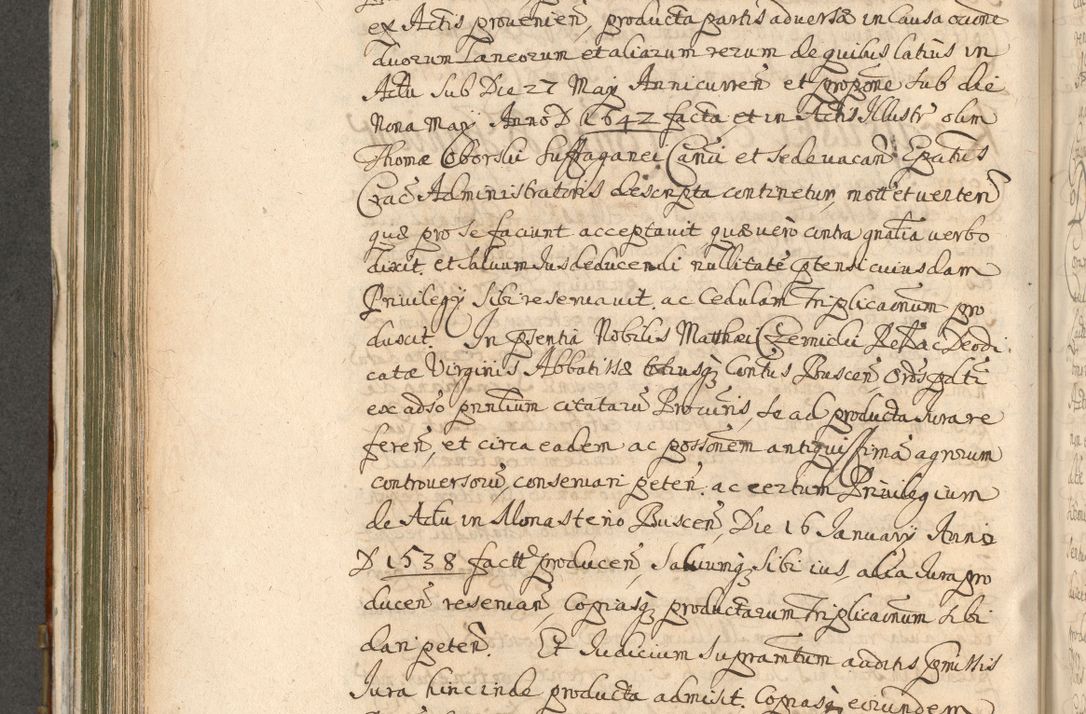 ex Actis provenien̄, producta partis adversæ in Causa oc̄cōne
duorum Laneorum et aliarum rerum de quibus latius in
Actu sub Die 27 Maÿ Anni curren̄ et propōne sub die
Nona Maÿ Anno D 1642 facta, et in Actis Illustr olim
Thomæ Oborski Suffraganei Cracōn et sede vacan̄ Ep̄atus
Crac Administratoris descripta continetur, mott et verten̄
quæ pro se faciunt acceptavit quæ vero contra gn̄alia verbo
dixit, et salvum Jus deducendi nullitatē p̄tensi cuiusdam
Privilegÿ sibi reservavit, ac Cedulam Triplicaōnum pro
duxit. In p̄sentia Nobilis Matthæi Czernicki Rel̄ ac Deodi
catæ Virginis Abbatissæ totiusq̨ Con̄tus Buscen̄
ex adso prin̄lium citatarū Procuris, se ad producta Jura re
feren̄, et circa eadem ac possōnem antiquissimā agrorum
controversorū, conservari peten̄. ac certum Privilegium
de Actu in Monasterio Buscen̄, Die 16 Januarÿ Anno
D 1538 factt̄ producen̄, Salvumq̨ sibi ius, alia Jura pro
ducen̄ reservan̄, Copiasq̨ productarum Triplicaōnum sibi
dari peten̄. Et Judicium supran̄tum auditis p̄missis
Jura hinc inde producta admisit. Copiasq̨ eorundem